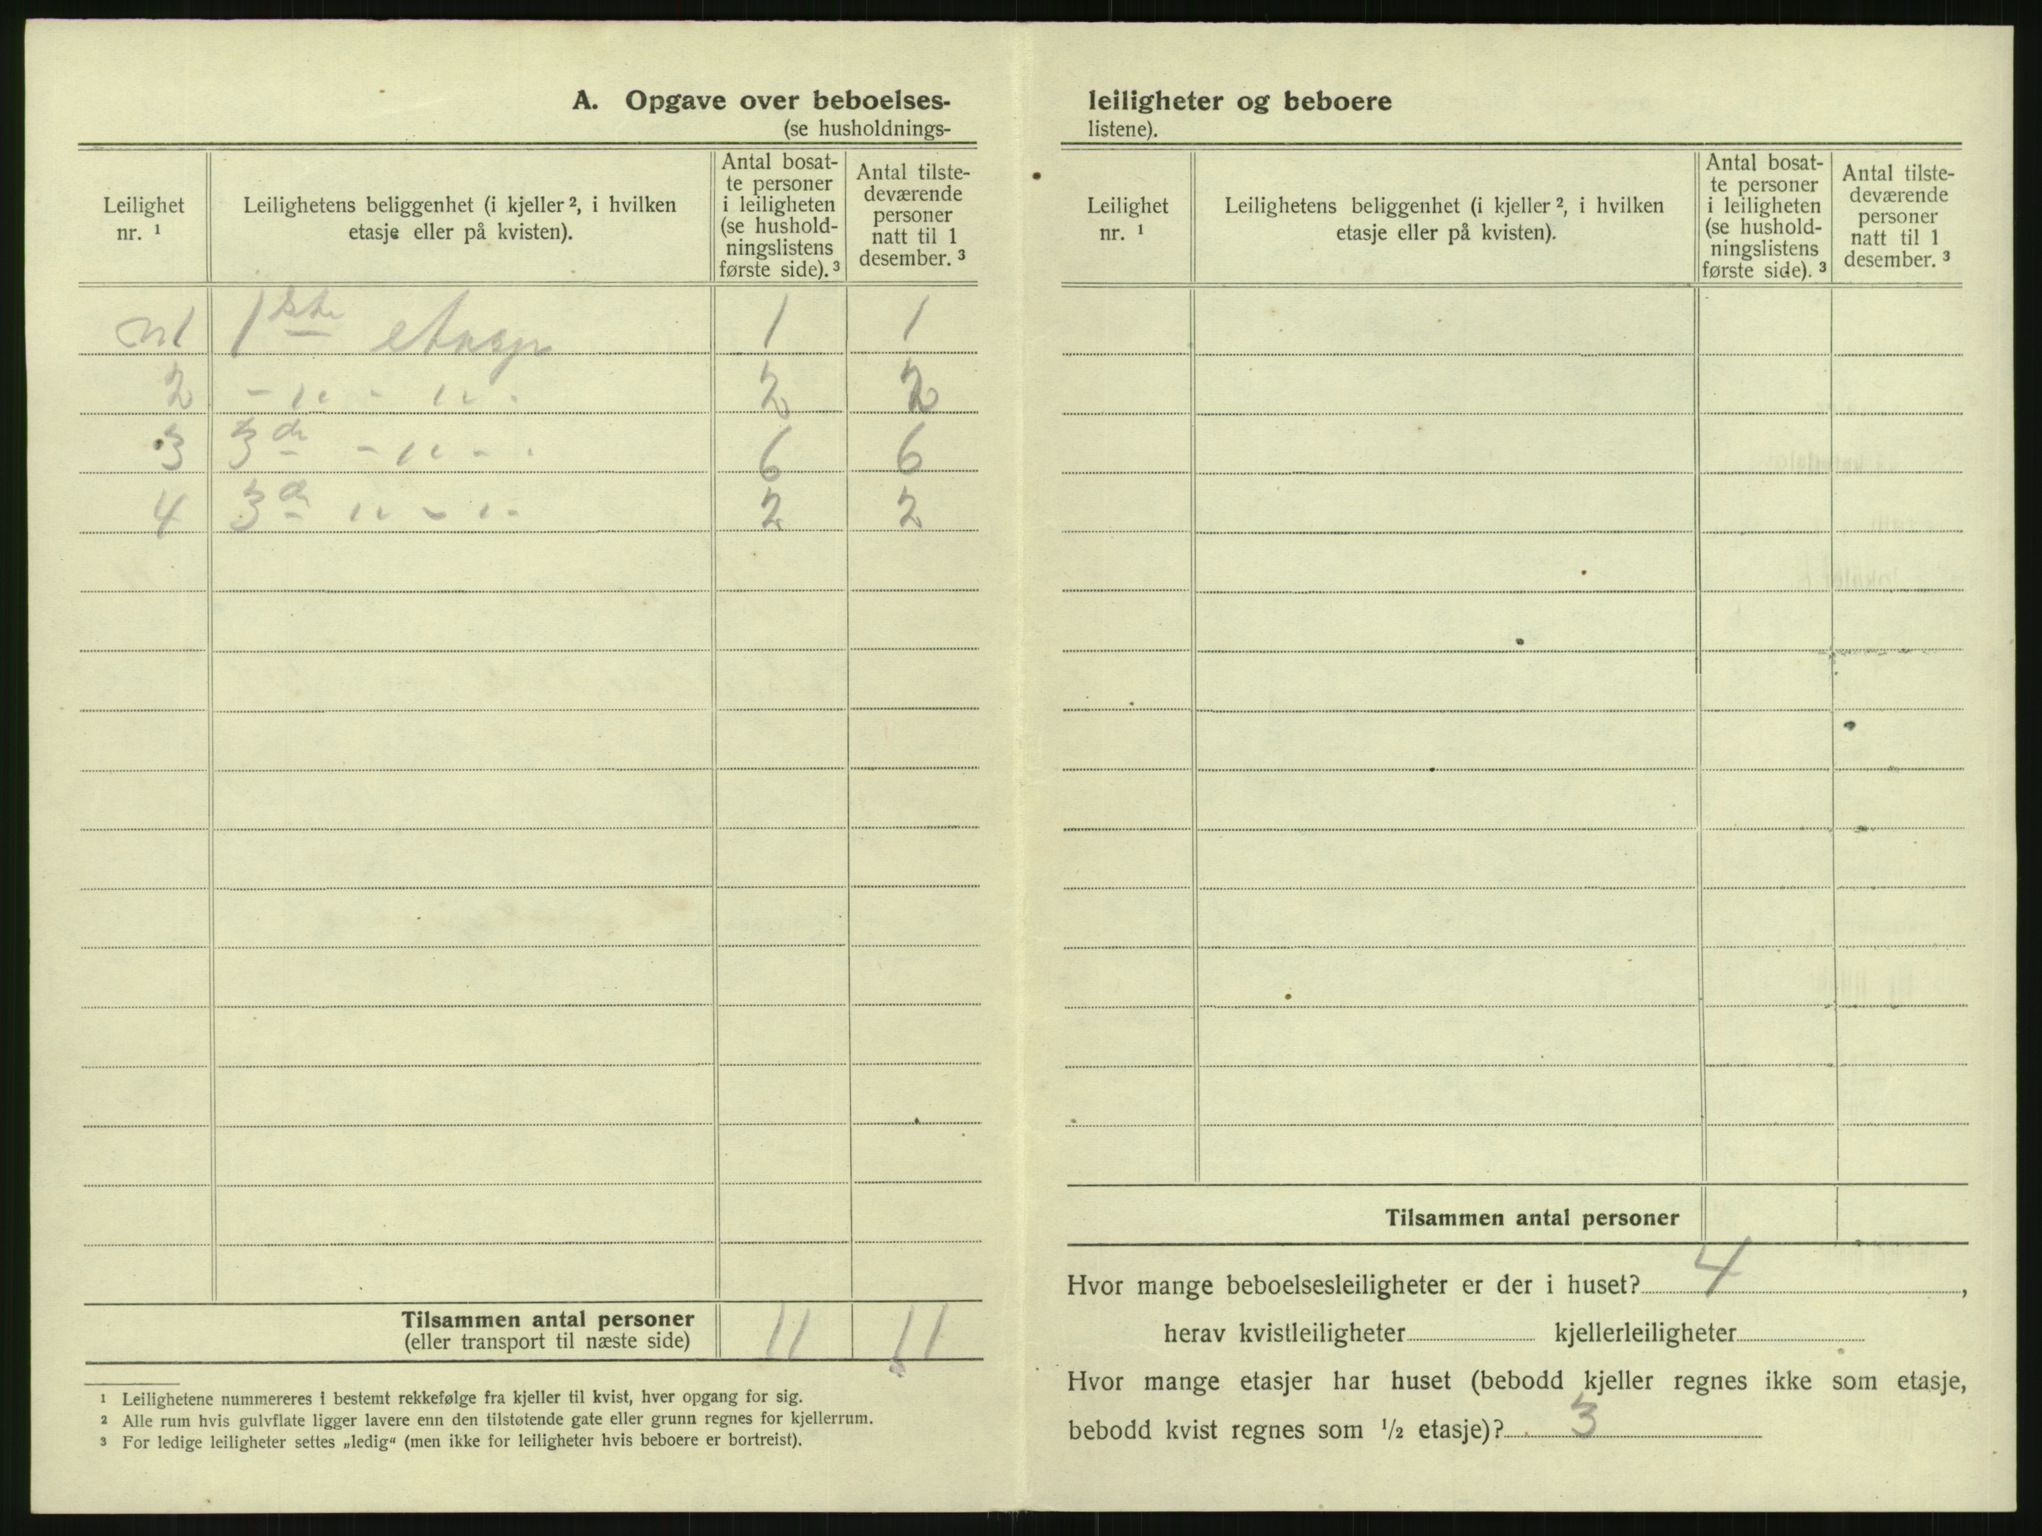 A. Opgave over beboelses-
(se husholdnings-
Leilighet nr. ¹
Leilighetens beliggenhet (i kjeller ², i hvilken
etasje eller på kvisten).
Antal bosat-
te personer
i leiligheten
(se hushold-
ningslistens
første side). ³
Antal tilste-
deværende
personer
natt til 1
desember. ³
n1 1ste etasje 1 1
2 - " - " - 2 2
3 3de - " - - 6 6
4 3de " - " - 2 2
Tilsammen antal personer
(eller transport til næste side) 11 11
¹ Leilighetene nummereres i bestemt rekkefølge fra kjeller til kvist, hver opgang for sig.
² Alle rum hvis gulvflate ligger lavere enn den tilstøtende gate eller grunn regnes for kjellerrum.
³ For ledige leiligheter settes „ledig“ (men ikke for leiligheter hvis beboere er bortreist).
leiligheter og beboere
listene).
Leilighet
nr. ¹
Leilighetens beliggenhet (i kjeller ², i hvilken
etasje eller på kvisten).
Antal bosat-
te personer
i leiligheten
(se hushold-
ningslistens
første side). ³
Antal tilste-
deværende
personer
natt til 1
desember. ³
Tilsammen antal personer
Hvor mange beboelsesleiligheter er der i huset? 4,
herav kvistleiligheter kjellerleiligheter
Hvor mange etasjer har huset (bebodd kjeller regnes ikke som etasje,
bebodd kvist regnes som ½ etasje)? 3